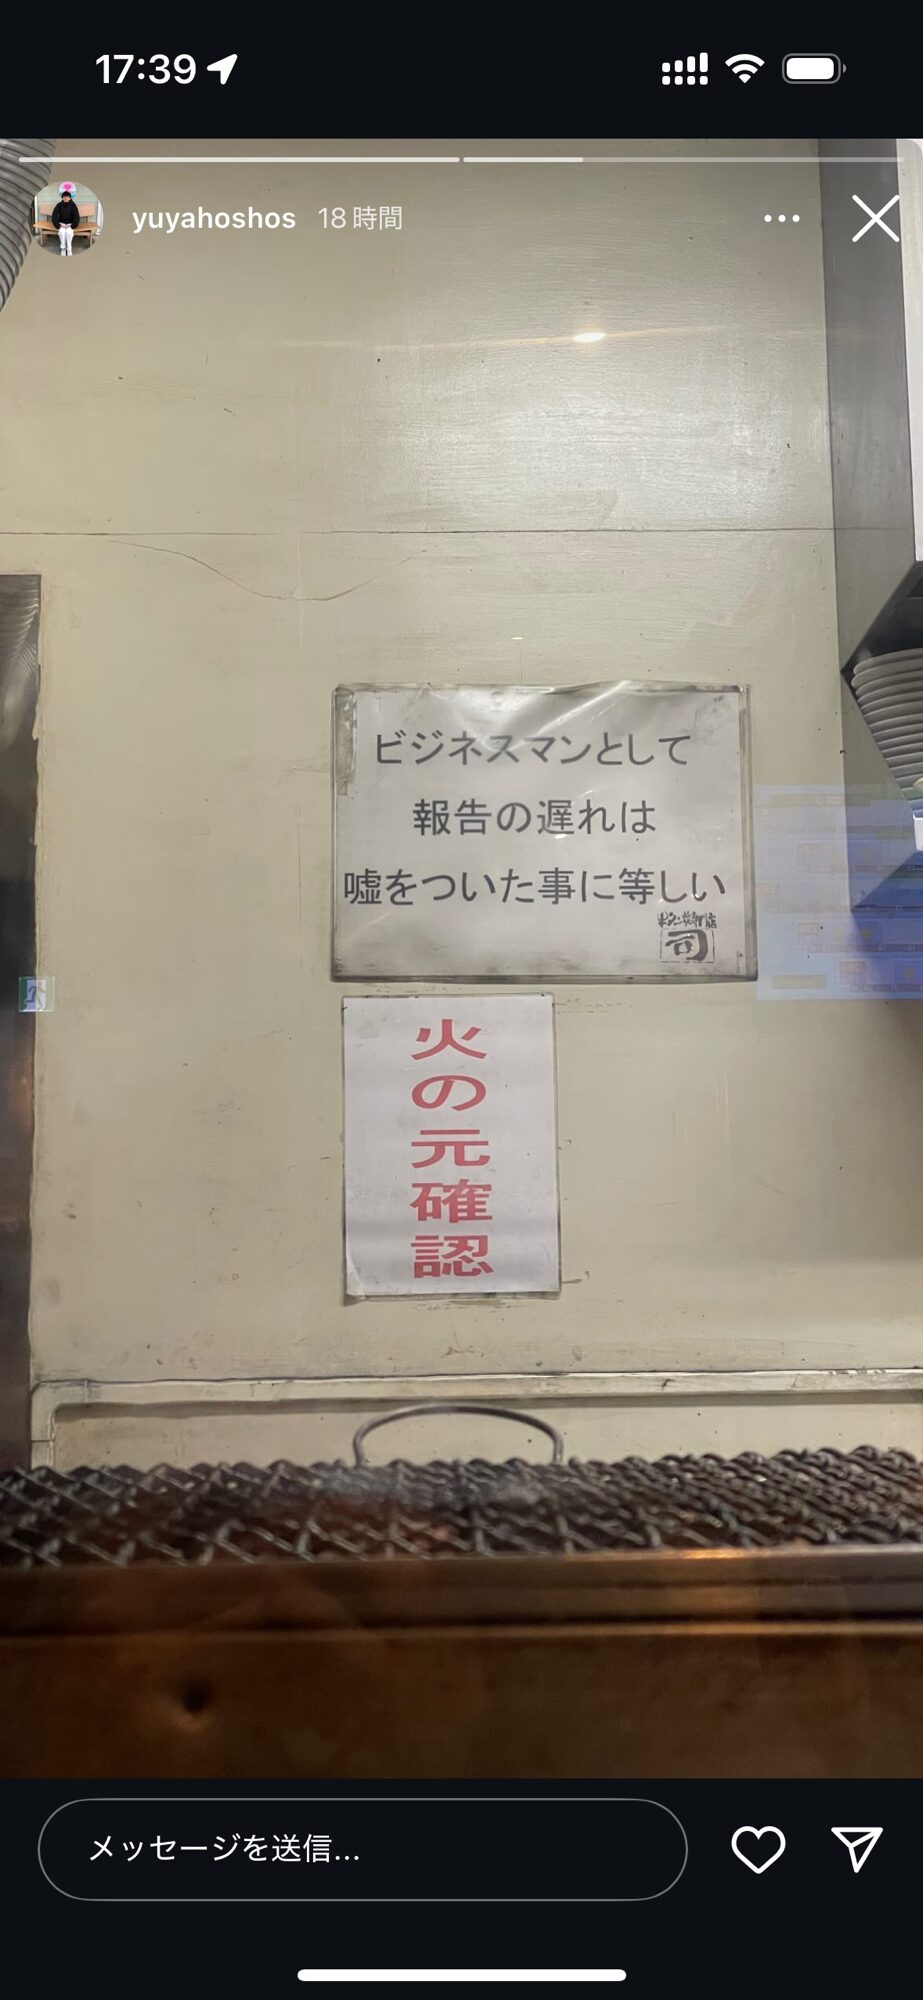 17:39
yuyahoshos 18時間
ビジネスマンとして
報告の遅れは
嘘をついた事に等しい
司
火の元確認
メッセージを送信...